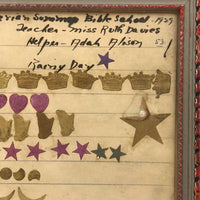 erian Summer Bible School - 1959
Teacher - Miss Ruth Davies
Helper - Adah Alison
Rainy Day